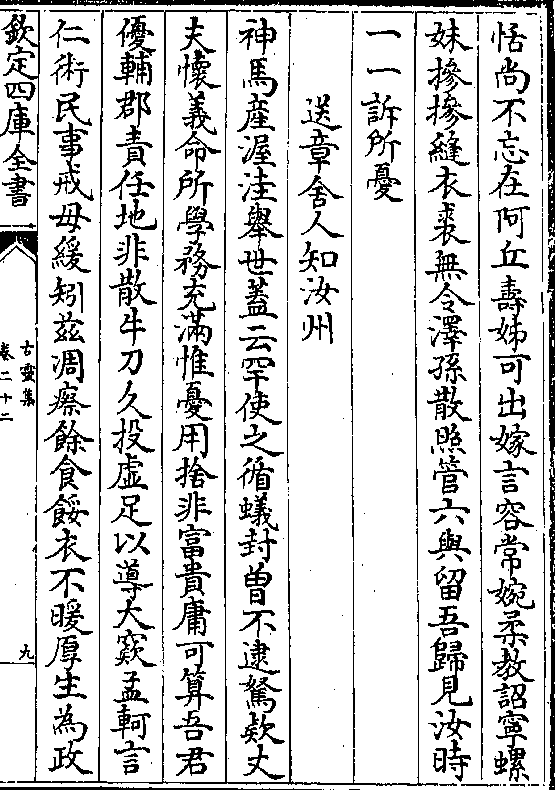 恬尚不忘在阿丘壽姊可出嫁言容常婉柔教詔寧螺
妹摻摻縫衣裘無令澤孫散照管六與留吾歸見汝時
一一訴所憂
送章舍人知汝州
神馬産渥洼舉世蓋云罕使之循蟻封曽不逮駑欵丈
夫懷義命所學務充滿惟憂用捨非富貴庸可算吾君
優輔郡責任地非散牛刀久投虚足以導大窾孟軻言
仁術民事戒毋緩矧兹凋瘵餘食餒衣不暖厚生為政
欽定四庫全書
古靈集
卷二十二
九